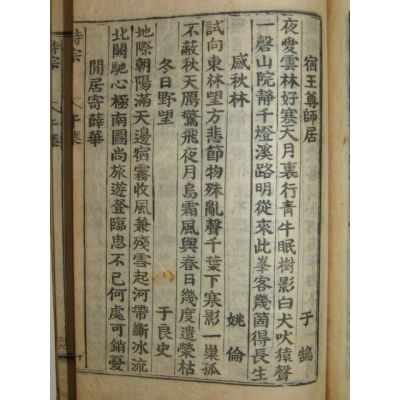 宿王尊師居　于鵠
夜愛雲林好寒天月裏行青牛眠樹影白犬吠猿聲
一磬山院靜千燈溪路明從來此峯客幾箇得長生
感秋林　姚倫
試向東林望方悲節物殊亂聲千葉下寒影一巢孤
不蔽秋天鴈驚飛夜月烏霜風與春日幾度遣榮枯
冬日野望　于良史
地際朝陽滿天邊宿霧收風兼殘雪起河帶斷冰流
北闕馳心極南圖尚旅遊登臨思不已何處可銷憂
閒居寄薛華